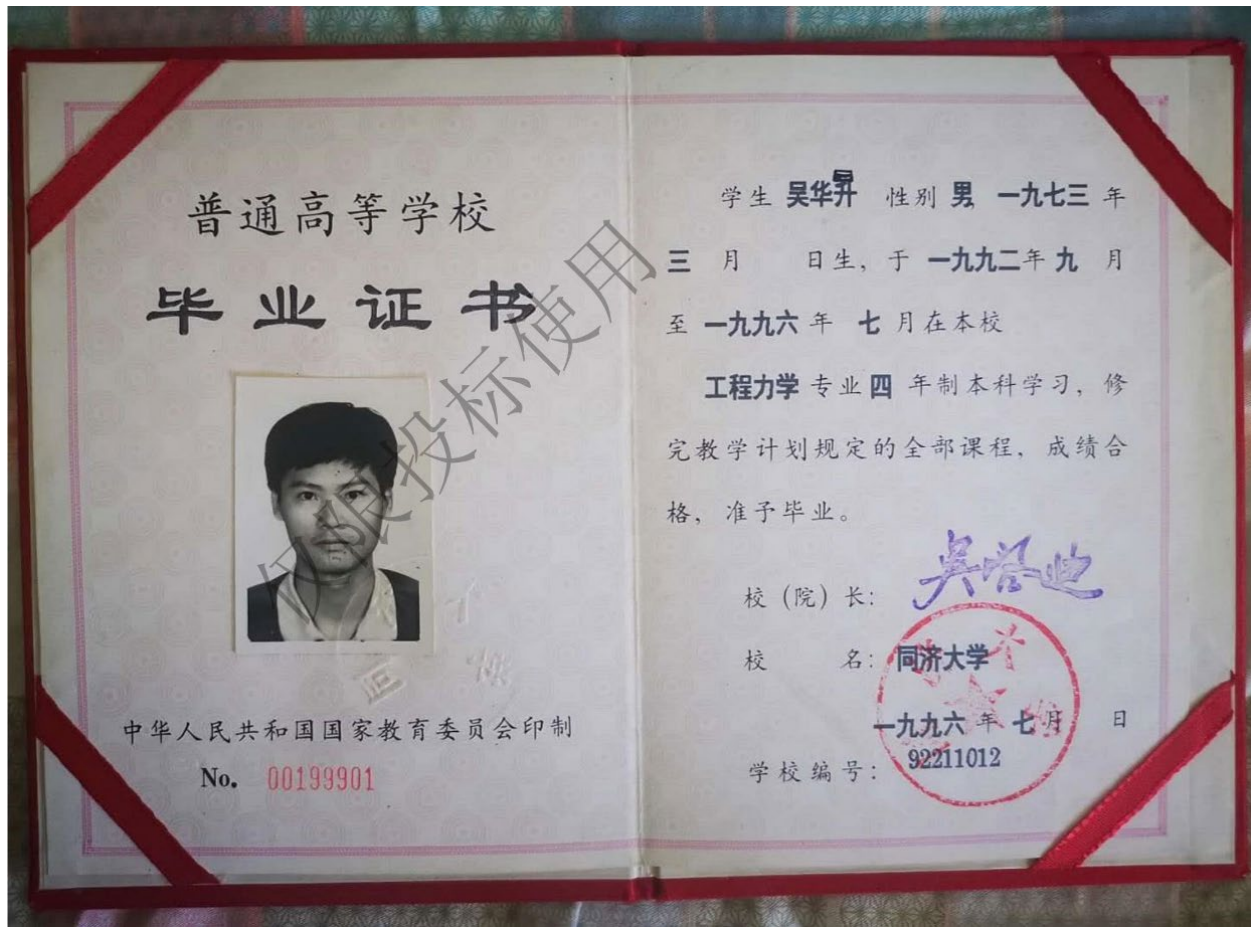 普通高等学校
毕业证书
中华人民共和国国家教育委员会印制
No. 00199901
仅限投标使用
学生 吴华 性别 男, 一九七三 年
三 月 日生, 于 一九九二年 九 月
至 一九九六 年 七 月在本校
工程力学 专业 四 年制本科学习, 修
完教学计划规定的全部课程, 成绩合
格, 准予毕业。
校 (院) 长: 吴启迪
校 名: 同济大学
一九九六 年 七月 日
学校编号: 92211012